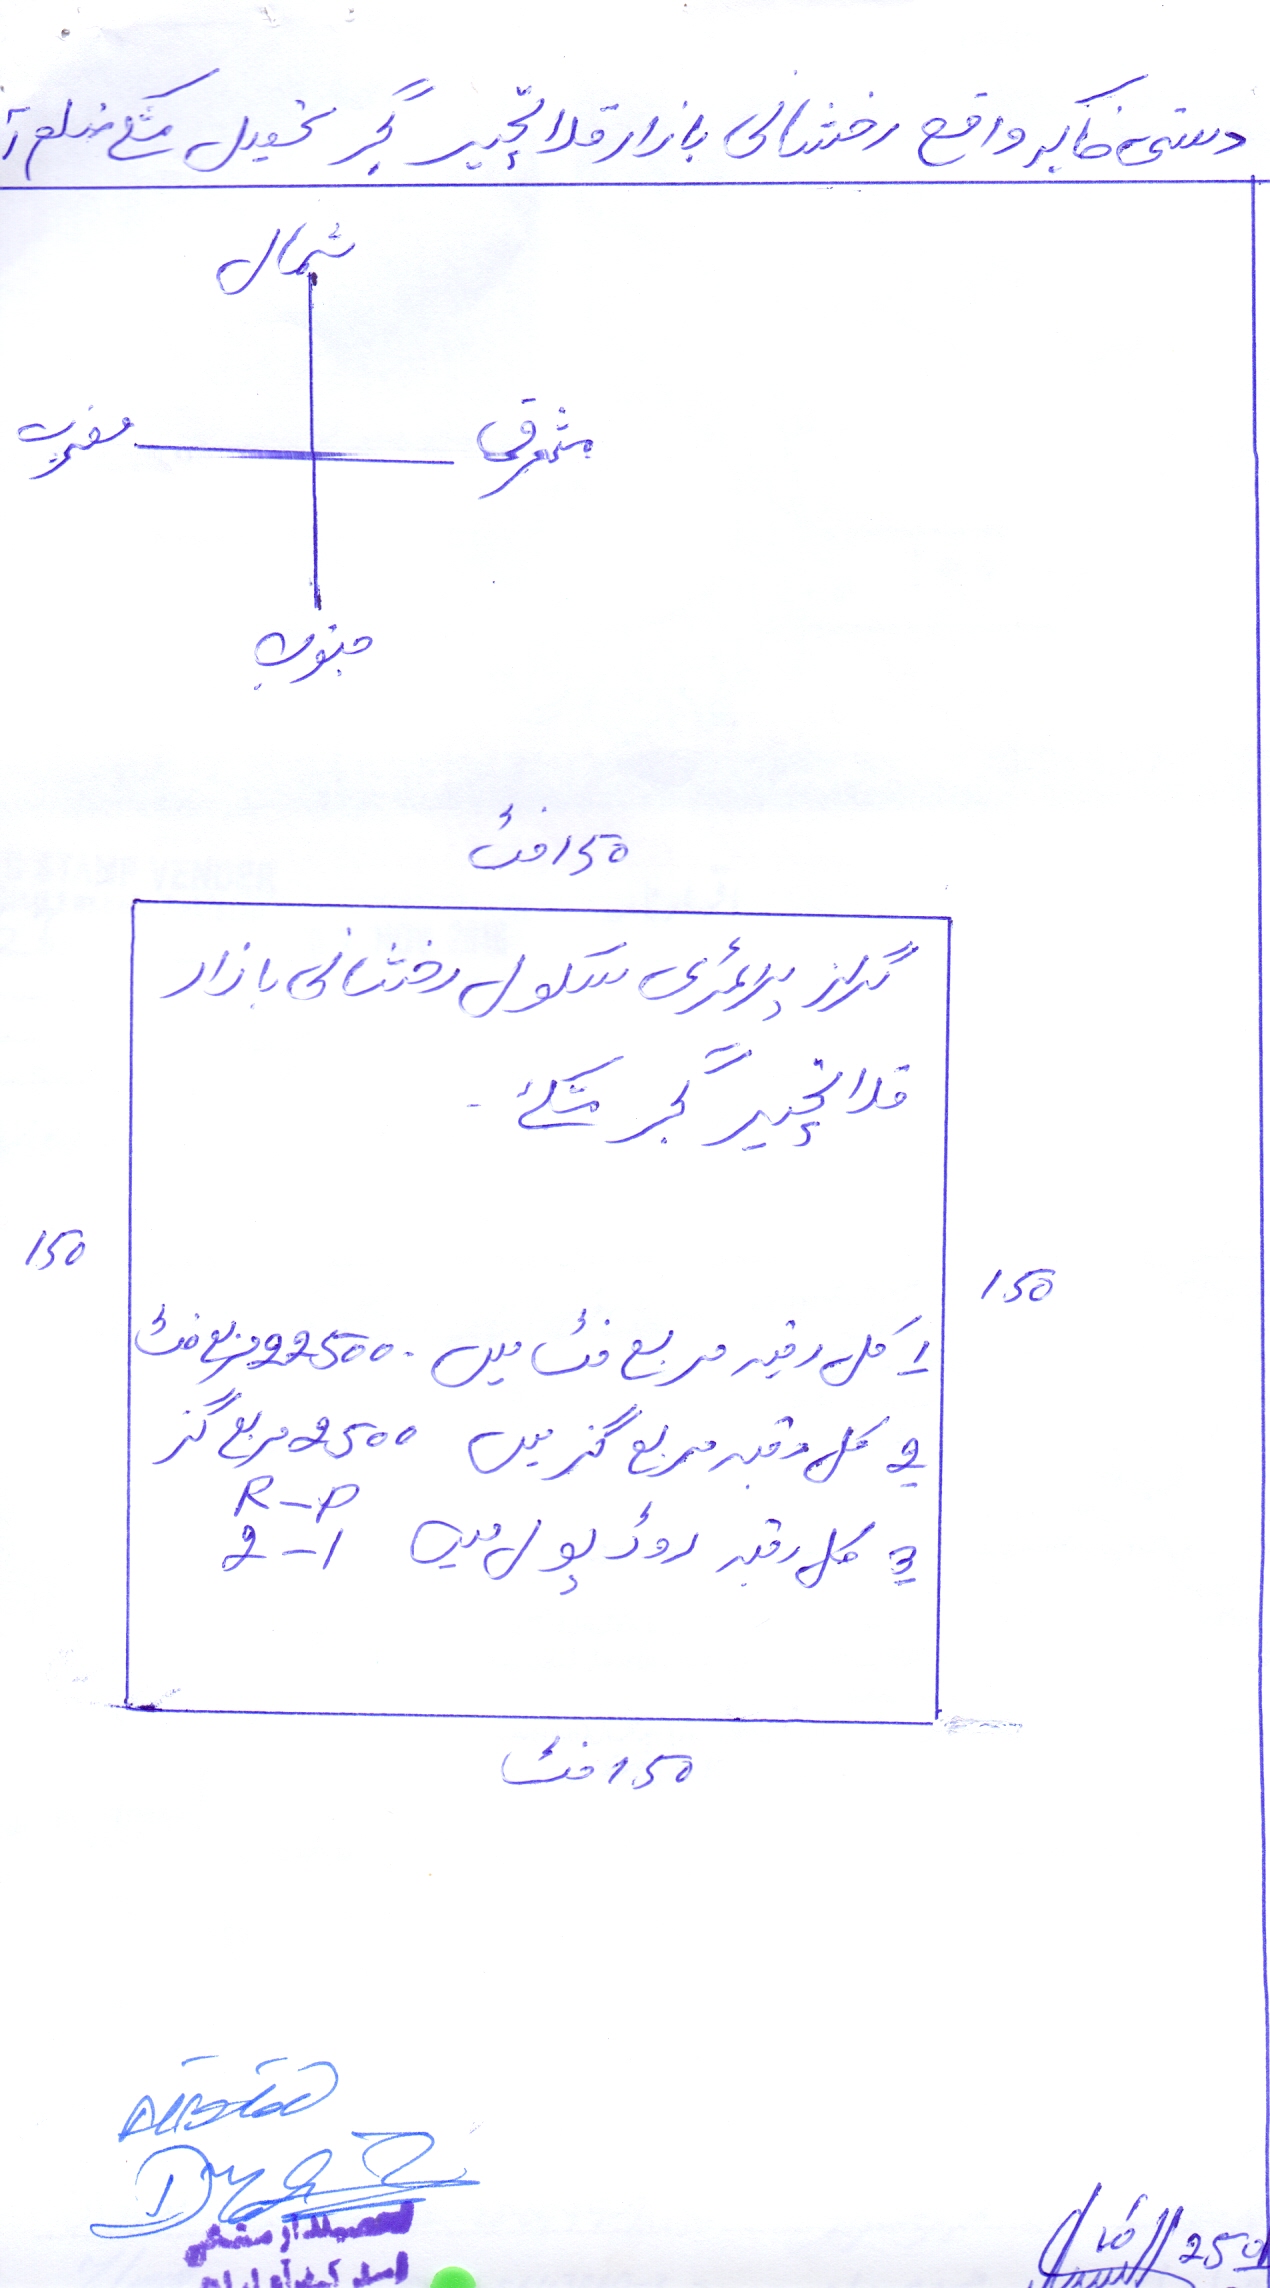 دستی خاکہ واقع رخشانی بازار قلاانچیر گجر تحصیل مشکے ضلع آ
شمال
مغرب
مشرق
جنوب
150 فٹ
گرلز پرائمری سکول رخشانی بازار
قلاانچیر گجر مشکے۔
150
150
1 کل رقبہ مربع فٹ میں۔ 22500 مربع فٹ
2 کل رقبہ مربع گز میں 2500 مربع گز
R-P
3 کل رقبہ روڈ پول میں 2-1
150 فٹ
Attested
تحصیلدار مشکے
250